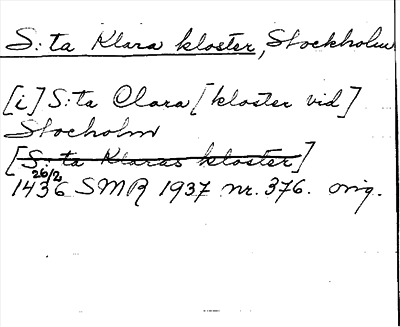 S:ta Klara kloster, Stockholm
[i] S:ta Clara [kloster vid]
Stocholm
[S:ta Klaras kloster]
26/2
1436 SMR 1937 nr. 376. orig.